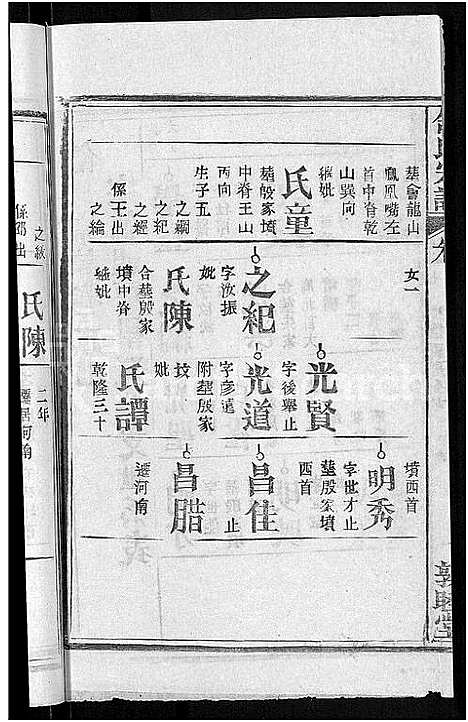 葬會龍山
鳳凰嘴左
首中脊乾
山巽向
繼妣
氏童
葬殷家墳
中脊壬山
丙向
生子五
之綱
之紀
之經
係王出
之綸
女一
之紀
字汝振
妣
氏陳
合葬殷家
墳中脊
繼妣
光賢
字後舉止
光道
字彥遠
附葬殷家
墳
妣
氏譚
乾隆三十
墳西首
明秀
字世才止
葬殷家墳
西首
昌佳
止
昌腊
遷河南
敦睦堂
之紘
係鄧出
氏陳
二年
遷居河南